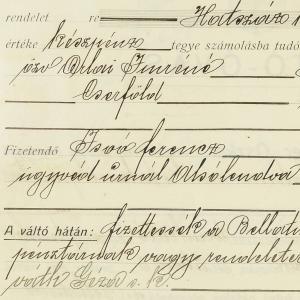 rendelet re Hatszáz
értéke készpénz tegye számolásba tudó
özv Orbai Imréné
Cserföld
Fizetendő Isoó ferencz
ügyvéd úrnál Alsólendva
A váltó hátán: fizettessék a Bellati
pénztárnak vagy rendelete
váth Géza s. k.